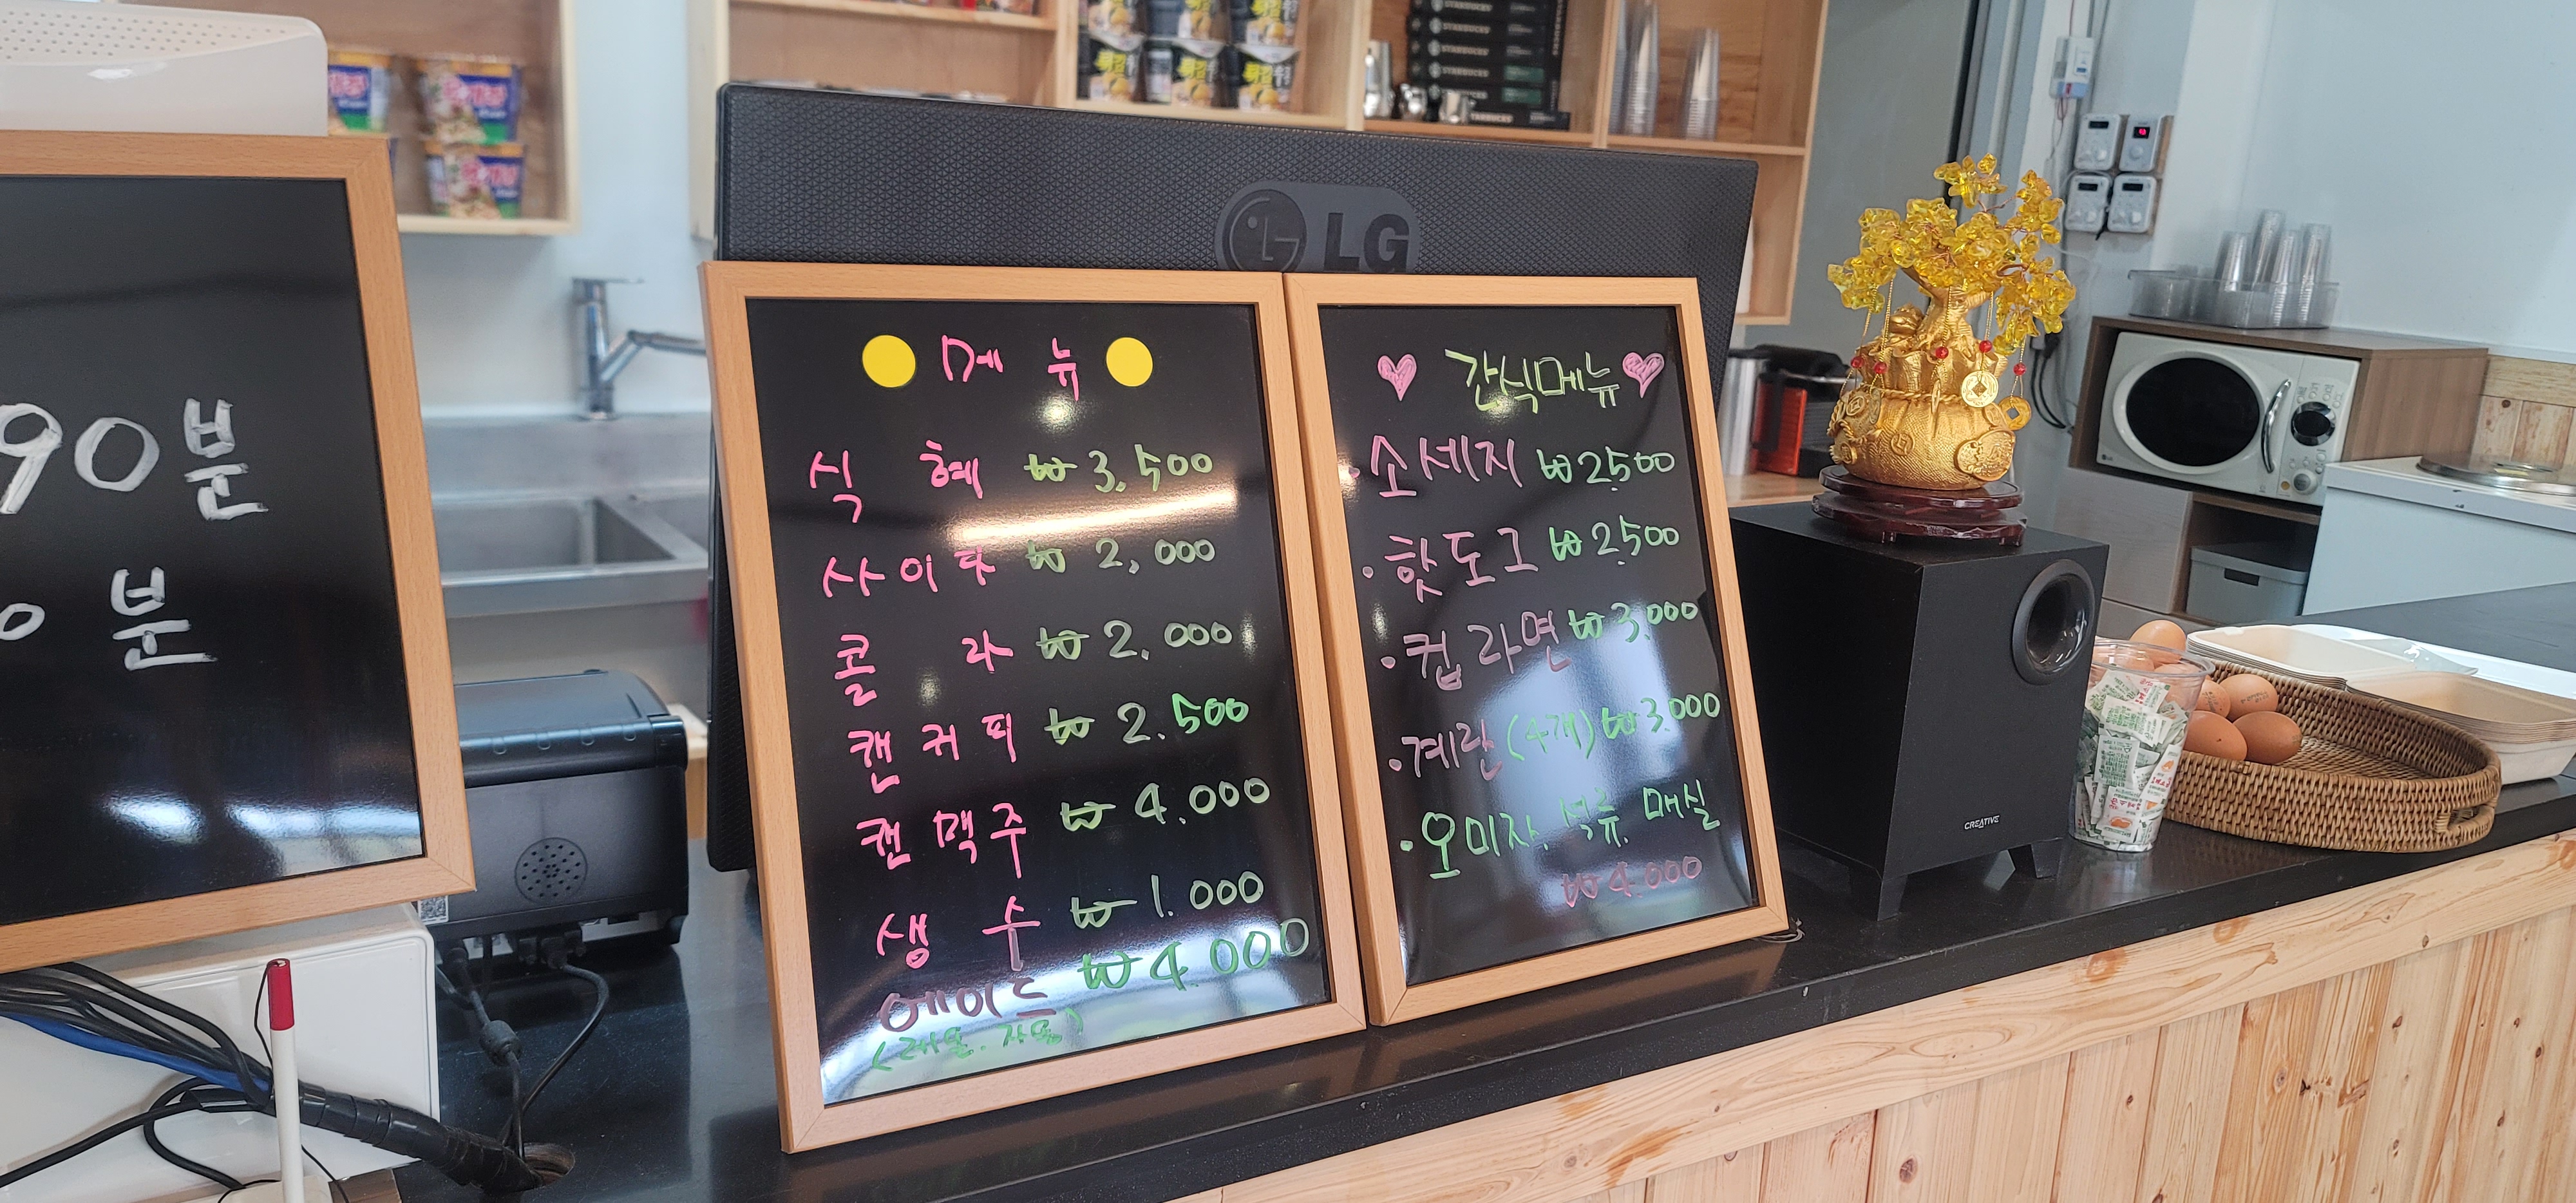 90분
0 분
LG
메 뉴
식 혜 ₩ 3,500
사이다 ₩ 2,000
콜 라 ₩ 2,000
캔커피 ₩ 2.500
캔맥주 ₩ 4.000
생 수 ₩ 1.000
에이드 ₩ 4.000
(레몬. 자몽)
간식메뉴
·소세지 ₩2,500
·핫도그 ₩2,500
·컵라면 ₩3,000
·계란(4개) ₩3.000
·오미자. 석류. 매실
₩4.000
STARBUCKS
STARBUCKS
STARBUCKS
STARBUCKS
STARBUCKS
CREATIVE